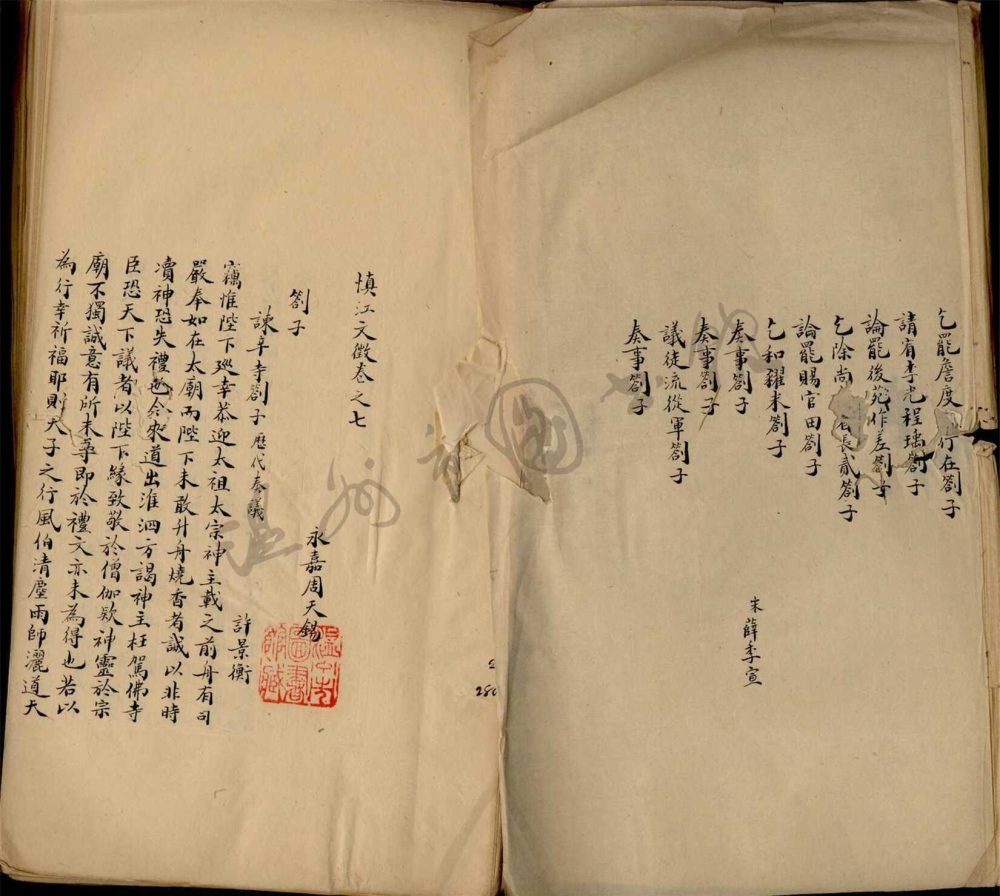 乞罷詹度 行在劄子
請宥李光程瑀劄子
論罷後苑作差劄子
乞除尚 長貳劄子
論罷賜官田劄子
乞和糴米劄子
奏事劄子
奏事劄子
議徒流從軍劄子
奏事劄子
宋薛季宣
慎江文徵卷之七
永嘉周天錫
劄子
諫幸寺劄子 歷代奏議 許景衡
竊惟陛下廵幸恭迎太祖太宗神主載之前舟有司
嚴奉如在太廟而陛下未敢升舟燒香者誠以非時
瀆神恐失禮也今來道出淮泗方謁神主枉駕佛寺
臣恐天下議者以陛下緣致敬於僧伽欵神靈於宗
廟不獨誠意有所未專即於禮文亦未為得也若以
為行幸祈福耶則天子之行風伯清塵雨師灑道天
溫州市圖書館藏
溫州圖書館
280